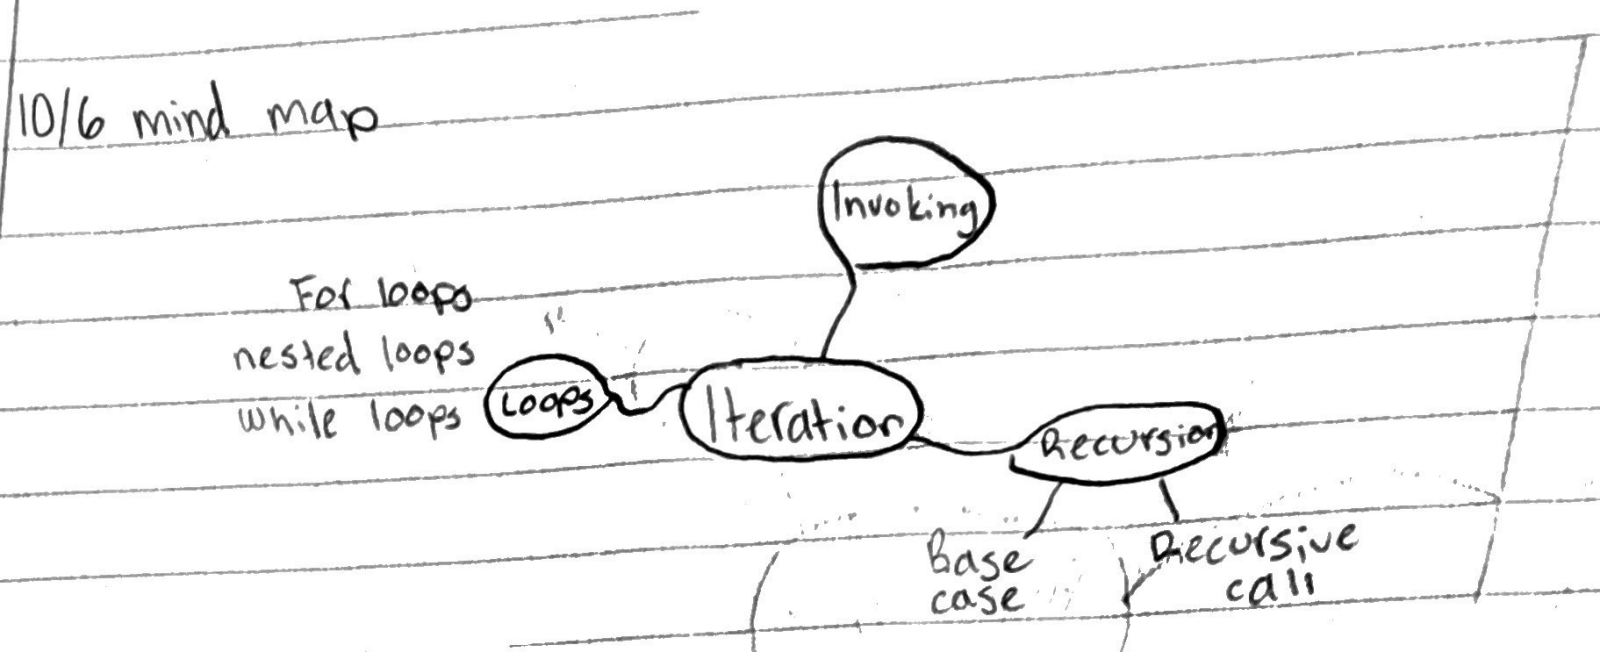 10/6 mind map
Invoking
For loops
nested loops
while loops
Loops
Iteration
Recursion
Base
case
Recursive
call